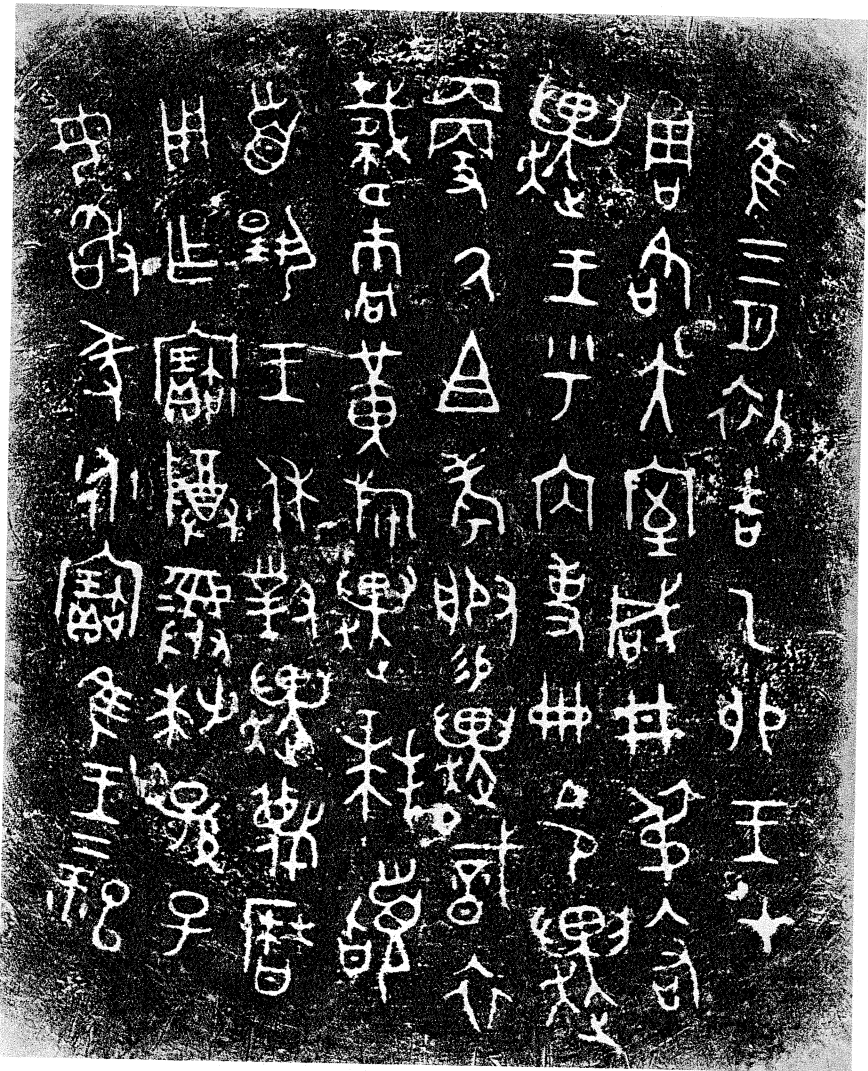 隹三月初吉乙卯王才
周各大室咸井弔入右
趩王乎内史冊令趩
更厥且考服易趩戠衣
載巿冋黃旂趩拜𩒨
首揚王休對趩蔑曆
用乍寶尊彝枼孫子
毋敢彖永寶隹王二祀